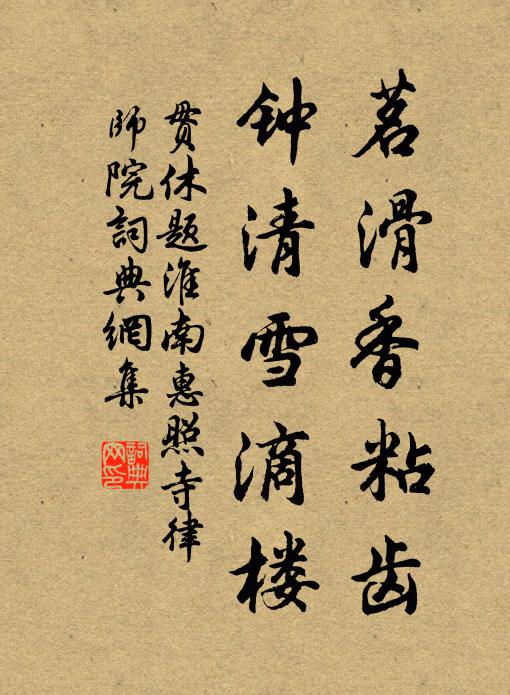 茗滑香粘齿
钟清雪滴楼
贯休题淮南惠照寺律
师院词典網集
詞典网印